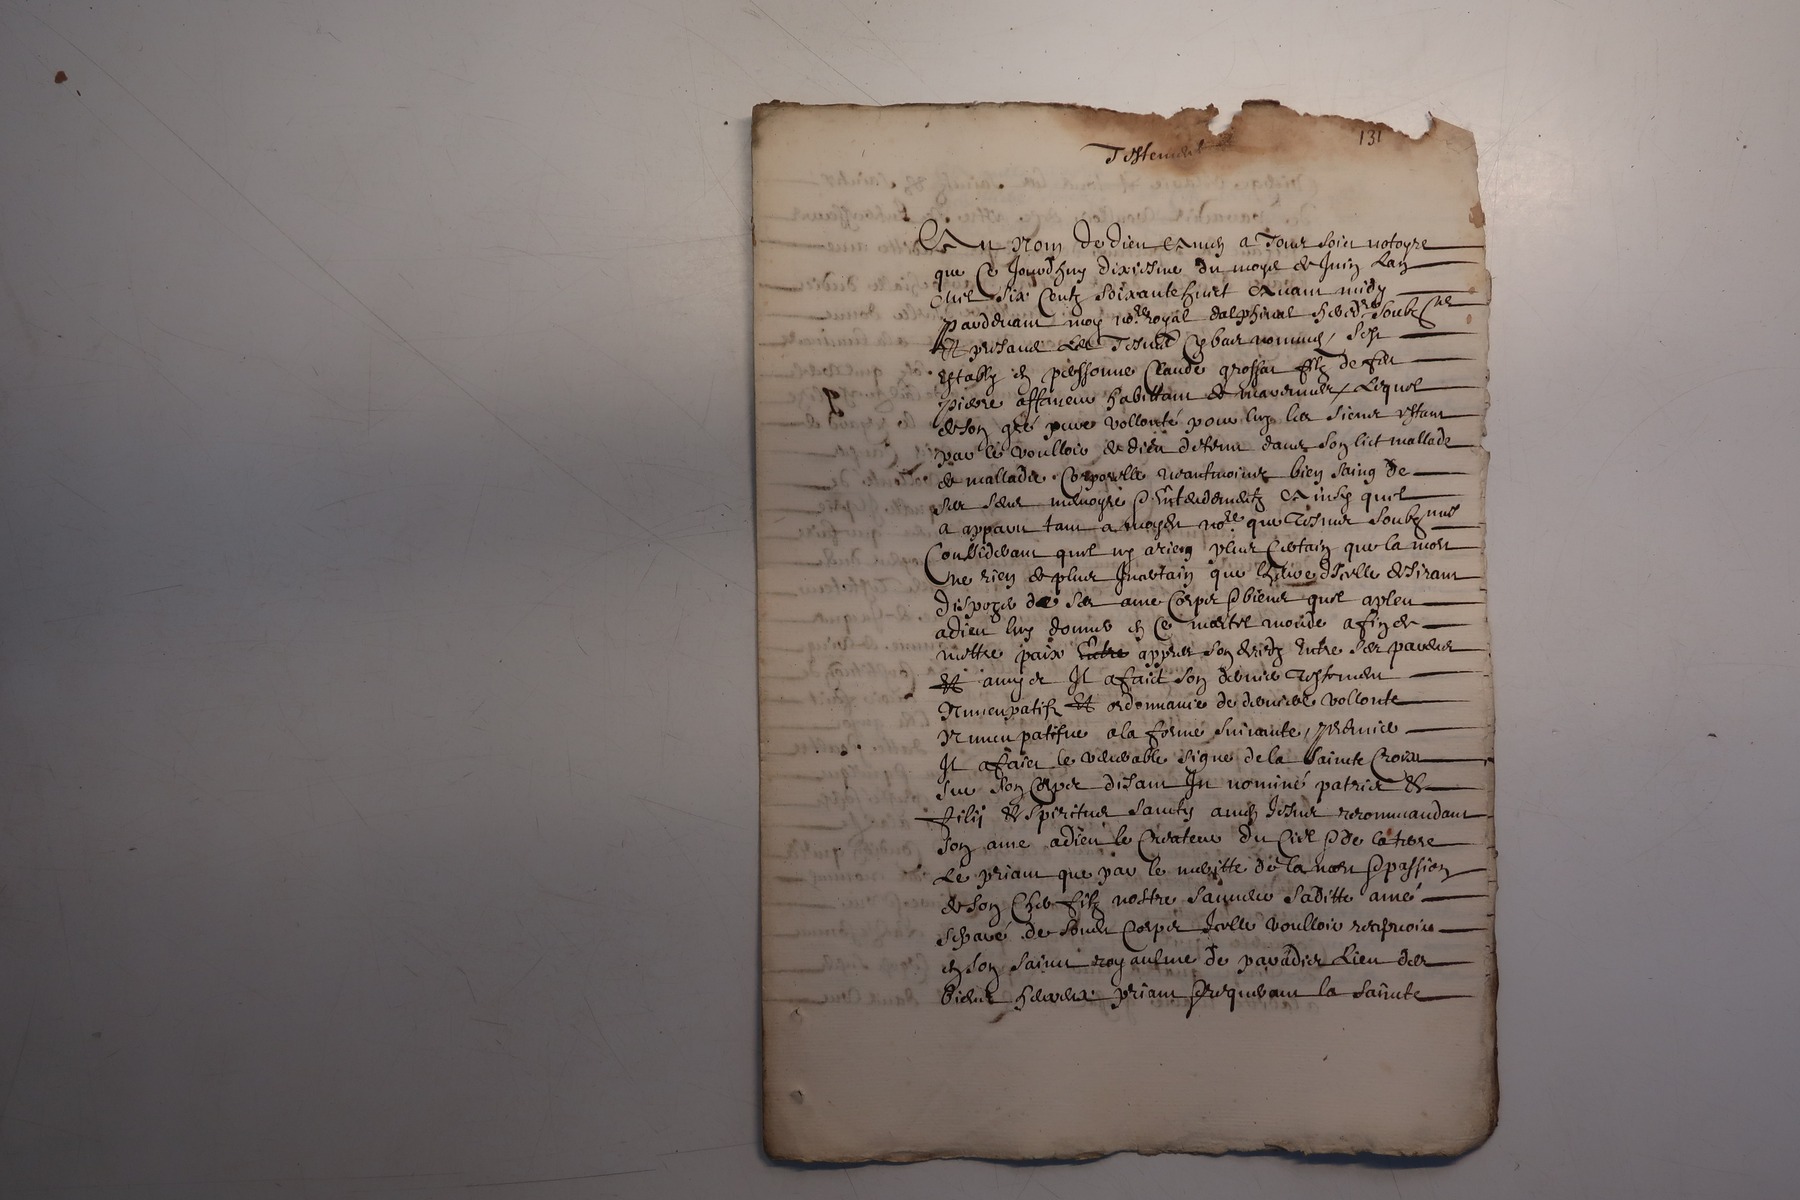 131
Testement
Au Nom de dieu Amen a Tous soict notoyre
que Ce Jourdhuy dixiesme du moys de Juin Lan
Mil Six Centz Soixante huict Avant midy
pardevant moy no.re royal dalphinal
Et presance des Tesmoins Cy bas nommes / Sest
estably en personne Claude grossat filz de feu
pierre habittant de / Lequel
de son gré pure vollonté pour luy les siens estant
par le voulloir de dieu detenu dans son lict mallade
de malladie Corporelle neantmoings bien saing de
ses sens memoyre & Entendementz Ainsy quil
a apparu tant a moydit no.re que Tesmoins soubznes
Considerant quil ny a rien plus Certain que la mort
Ne rien de plus Incertain que lheure dIcelle desirant
dispozer de ses ame Corps & biens quil a pleu
a dieu luy donner en Ce mortel monde afin de
mettre paix Entre appres son decedz Entre ses parens
Et amys Il a faict son dernier Testement
Nuncupatif Et ordonnance de derniere vollonte
Nuncupatifve a la forme suivante / premier
Il a faict le venerable signe de la Saincte Croix
sur son Corps disant In nominé patris &
filij & spiritus sancty amen Jesus recommandant
son ame a dieu le Createur du Ciel & de la terre
Le priant que par le meritte de la mort & passion
de son Cher filz nostre sauveur saditte ame
separé de sondit Corps Icelle voulloir recepvoir
en son sainct royaulme de paradis Lieu des
biens heureux priant & requerant la saincte